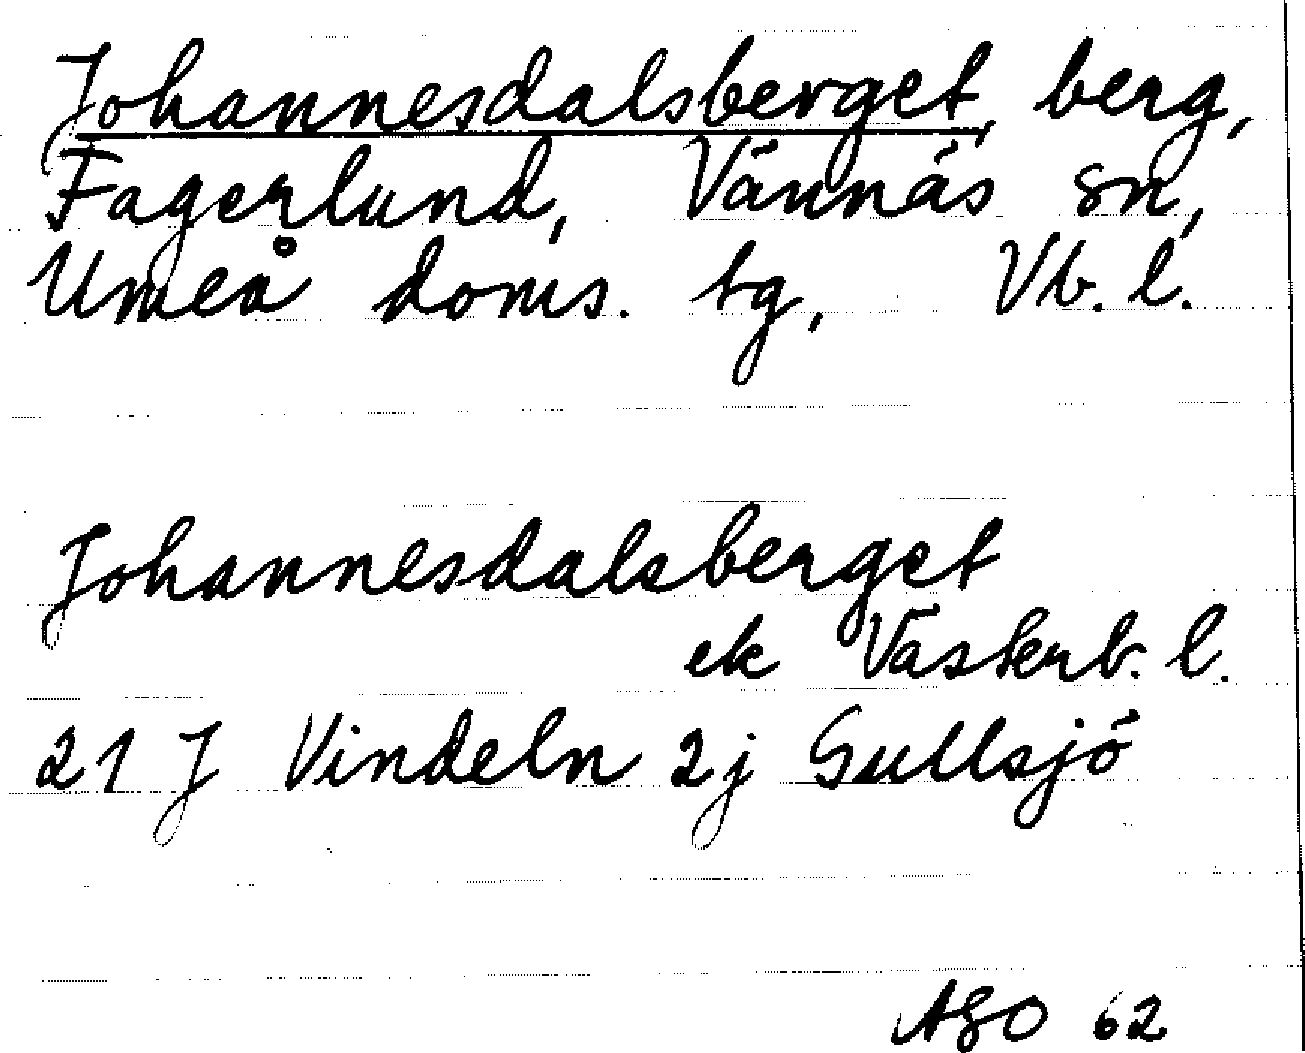 Johannesdalsberget, berg,
Fagerlund, Vännäs sn,
Umeå doms. tg, Vb. l.
Johannesdalsberget
ek Västerb. l.
21 J Vindeln 2j Gullsjö
62